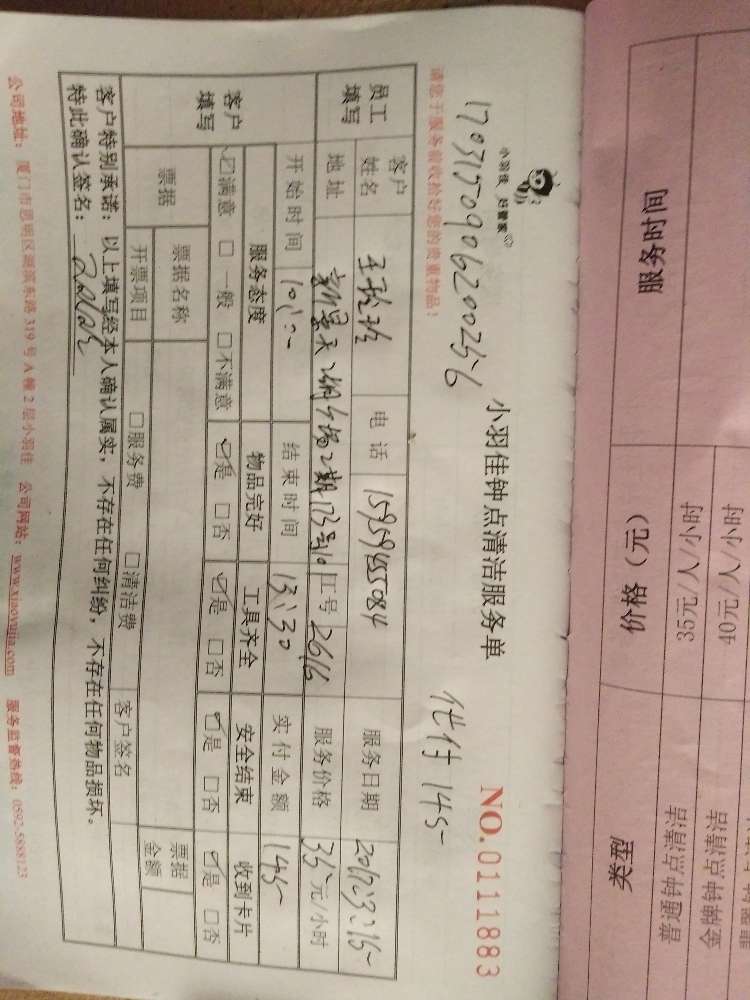 小羽佳 好管家
小羽佳钟点清洁服务单
NO.0111883
1703150906200256
代付 145-
请您于服务前收拾好您的贵重物品!
员工填写
客户姓名
电话 15959455084
服务日期
地址
工号 2616
服务价格 35元/小时
开始时间
结束时间 13:30
实付金额 145-
客户填写
服务态度 物品完好 工具齐全 安全结束 收到卡片
☑满意 □一般 □不满意 ☑是 □否 ☑是 □否 ☑是 □否 ☑是 □否
票据
票据名称
票据金额
开票项目 □服务费 □清洁费 客户签名
客户特别承诺:以上填写经本人确认属实,不存在任何纠纷,不存在任何物品损坏。
特此确认签名:
公司地址:厦门市思明区湖滨东路319号A幢2层小羽佳 公司网站:www.xiaoyujia.com 服务监督热线:0592-5888123
服务时间 价格(元) 类型
35元/人/小时 普通钟点清洁
40元/人/小时 金牌钟点清洁